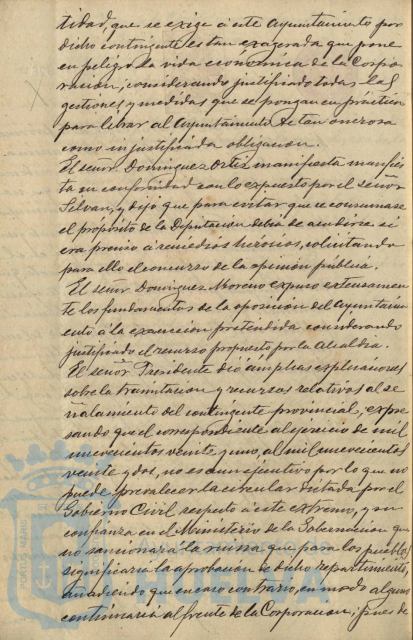 tidad, que se exige a este Ayuntamiento por
dicho contingente es tan exagerada que pone
en peligro la vida económica de la Corpo-
ración; considerando justificado todas las
gestiones y medidas que se pongan en práctica
para librar al Ayuntamiento de tan onerosa
como injustificada obligacion.
El señor Dominguez Ortiz manifiesta manifies
ta su conformidad con lo expuesto por el señor
Silvan, y dijo que para evitar que se consumase
el propósito de la Diputacion debia de acudirse si
era preciso a remedios heroicos, solicitando
para ello el concurso de la opinion pública.
El señor Dominguez Moreno expuso extensamen
te los fundamentos de la oposicion del Ayuntami
ento á la exaccion pretendida considerando
justificado el recurso propuesto por la Alcaldia.
El señor Presidente dió ámplias explicaciones
sobre la tramitacion y recursos relativos al se
ñalamiento del contingente provincial, expre
sando que el correspondiente al ejercicio de mil
novecientos veinte y uno, al mil novecientos
veinte y dos, no es ejecutivo por lo que no
puede prevalecer la circular dictada por el
Gobierno Civil respecto á este extremo, y su
confianza en el Ministerio de la Gobernacion que
no sancionará la ruina que para los pueblos
significaria la aprobacion de dicho repartimiento,
añadiendo que en caso contrario, en modo alguno
continuaria al frente de la Corporacion; pues de
PORTUS MARIS
HUELVA